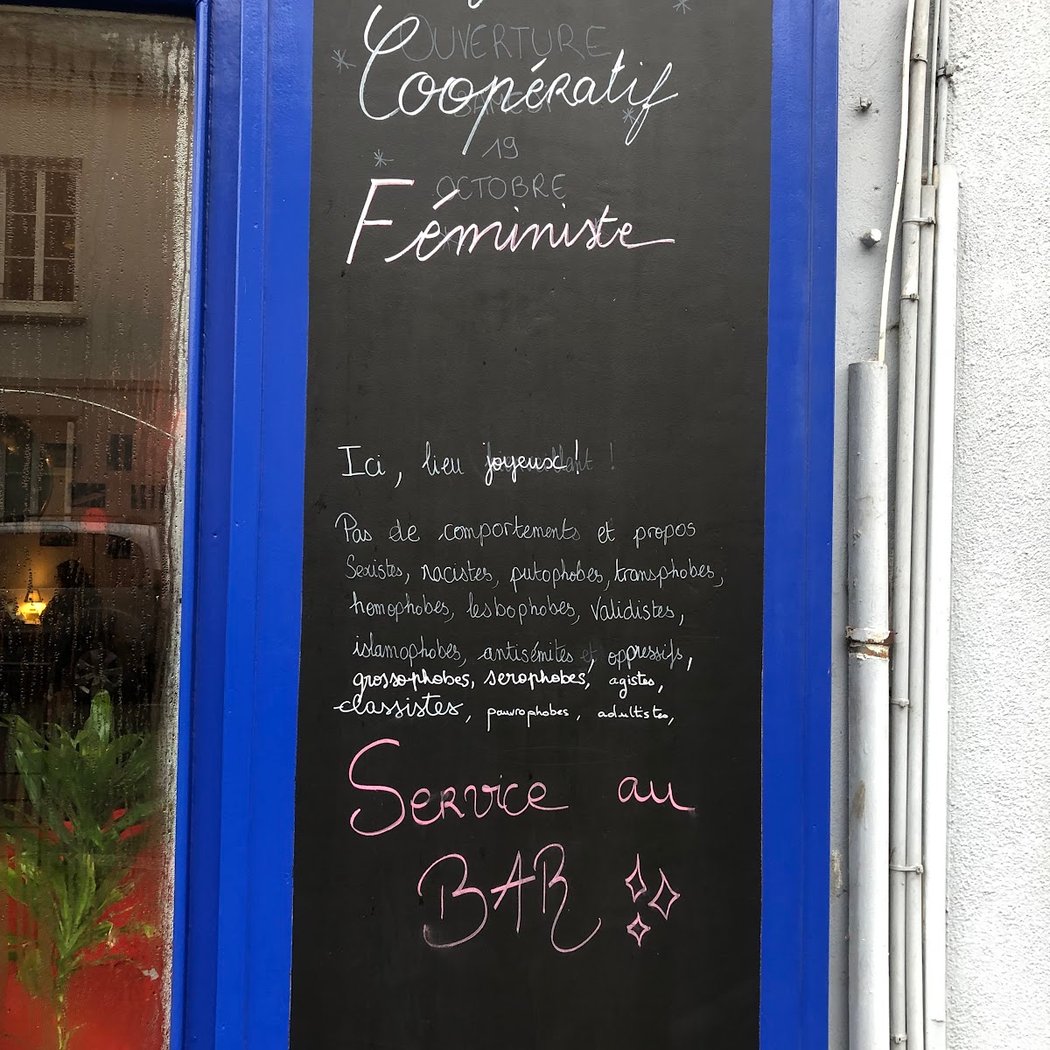 OUVERTURE
Coopératif
19
OCTOBRE
Féministe
Ici, lieu joyeux !
Pas de comportements et propos
Sexistes, racistes, putophobes, transphobes,
homophobes, lesbophobes, Validistes,
islamophobes, antisémites et, oppressifs,
grossophobes, serophobes, agistes,
classistes, pauvrophobes, adultistes,
SERVICE au
BAR